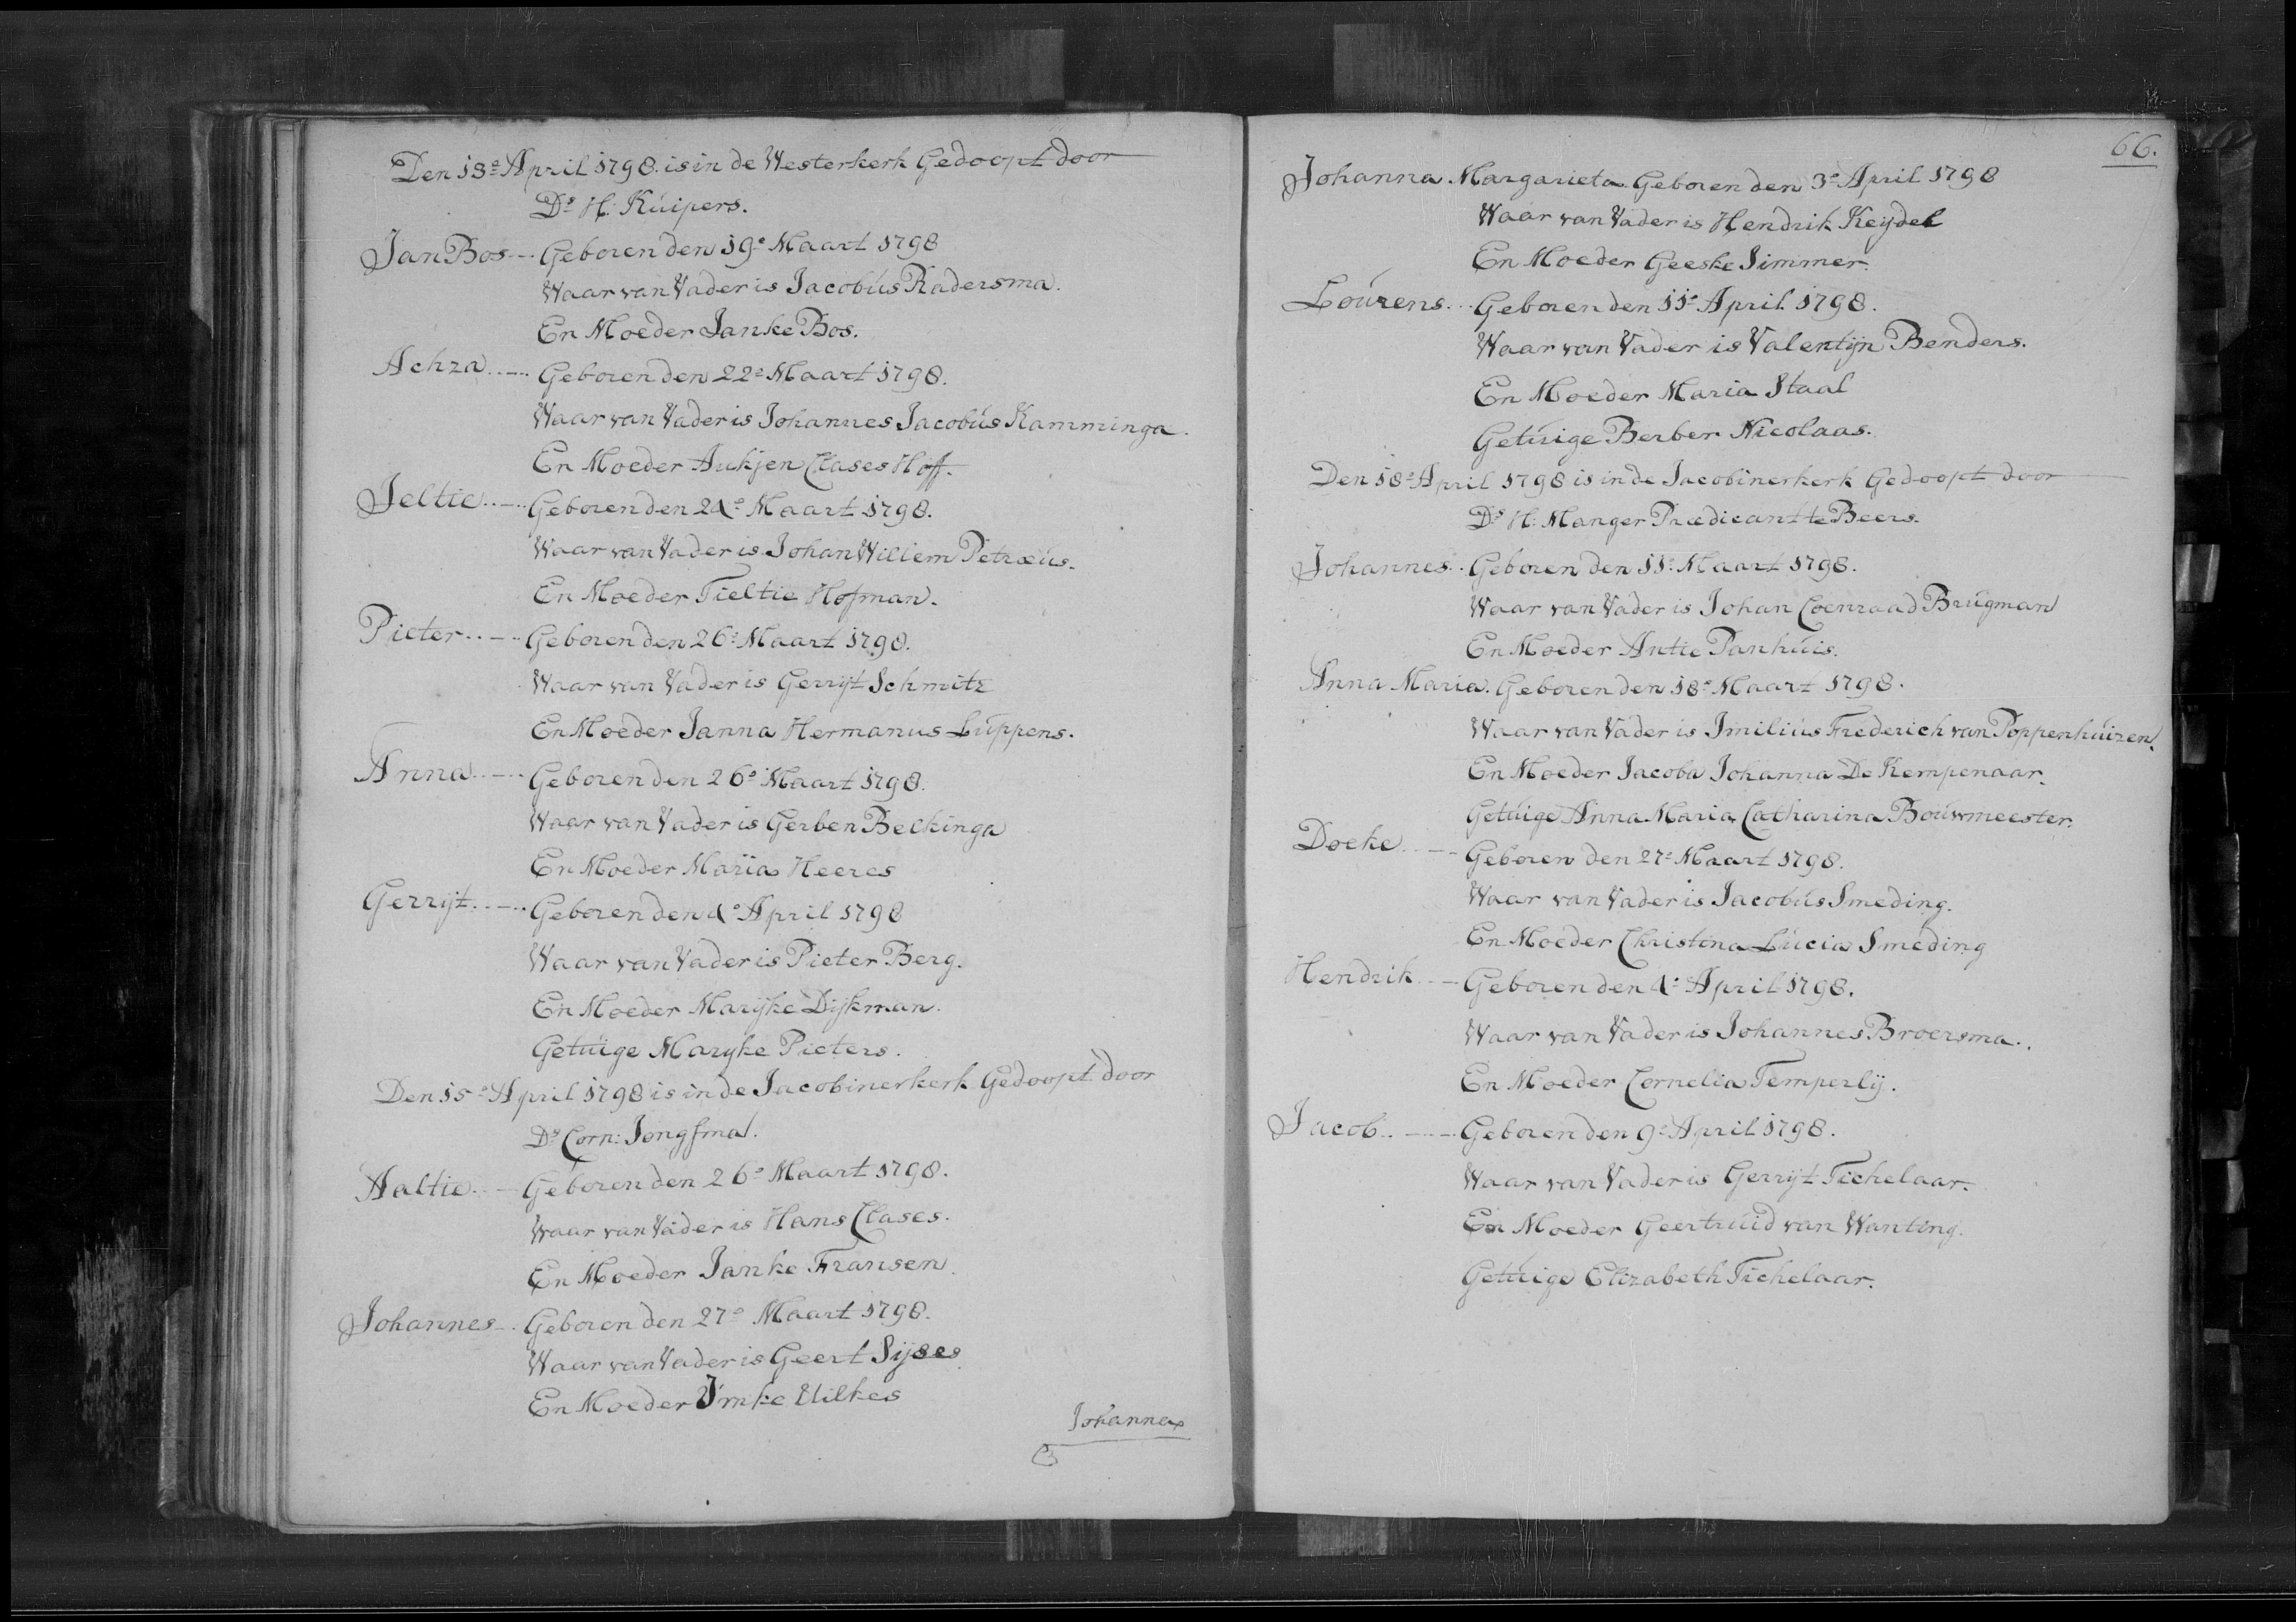 Den 13e April 1798. is in de Westerkerk Gedoopt door
Ds H: Kúipers.
Jan Bos --- Geboren den 19e Maart 1798
Waar van Vader is Jacobús Radersma.
En Moeder Janke Bos.
Achza ..--.. Geboren den 22e Maart 1798.
Waar van Vader is Johannes Jacobús Kamminga.
En Moeder Aukjen Clases Hoff.
Jeltie ..--.. Geboren den 24e Maart 1798.
Waar van Vader is Johan Willem Petræús.
En Moeder Tieltie Hofman.
Pieter ..--.. Geboren den 26e Maart 1798.
Waar van Vader is Gerrijt Schmitz
En Moeder Janna Hermanús Lúppens.
Anna ..--.. Geboren den 26e Maart 1798.
Waar van Vader is Gerben Beckinga
En Moeder Maria Heeres
Gerrijt ..--.. Geboren den 4e April 1798
Waar van Vader is Pieter Berg.
En Moeder Marijke Dijkman.
Getúige Maryke Pieters.
Den 15e April 1798 is in de Jacobinerkerk Gedoopt door
Ds Corn: Jongsma.
Aaltie ..-- Geboren den 26e Maart 1798.
Waar van Vader is Hans Clases.
En Moeder Janke Fransen.
Johannes -. Geboren den 27e Maart 1798.
Waar van Vader is Geert Sijses
En Moeder Imke Uilkes
Johanna
66.
Johanna Margarieta. Geboren den 3e April 1798
Waar van Vader is Hendrik Keijdel
En Moeder Geeske Simmer.
Loúrens ... Geboren den 11e April 1798.
Waar van Vader is Valentijn Benders.
En Moeder Maria Staal
Getúige Berber Nicolaas.
Den 18e April 1798 is in de Jacobinerkerk Gedoopt door
Ds H: Manger Prædicant te Beers.
Johannes .. Geboren den 11e Maart 1798.
Waar van Vader is Johan Coenraad Brúgman
En Moeder Antie Panhúis.
Anna Maria. Geboren den 18e Maart 1798.
Waar van Vader is Imiliús Frederich van Poppenhúizen.
En Moeder Jacoba Johanna De Kempenaar.
Getúige Anna Maria Catharina Boúwmeester.
Doeke ..-- Geboren den 27e Maart 1798.
Waar van Vader is Jacobús Smeding.
En Moeder Christina Lúcia Smeding
Hendrik ..-- Geboren den 4e April 1798.
Waar van Vader is Johannes Broersma.
En Moeder Cornelia Temperlij.
Jacob ..--- Geboren den 9e April 1798.
Waar van Vader is Gerrijt Tichelaar.
En Moeder Geertrúid van Wanting.
Getúige Elizabeth Tichelaar.